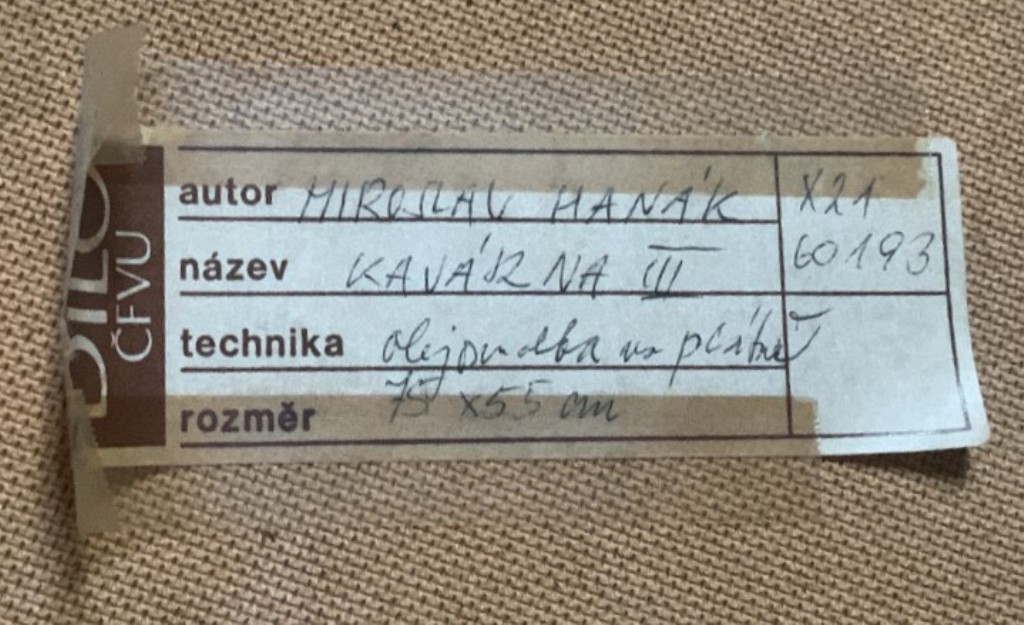 DÍLO
ČFVU
autor MIROSLAV HANÁK X21
název KAVÁRNA III 60193
technika olejomalba na plátně
rozměr 75 x 55 cm